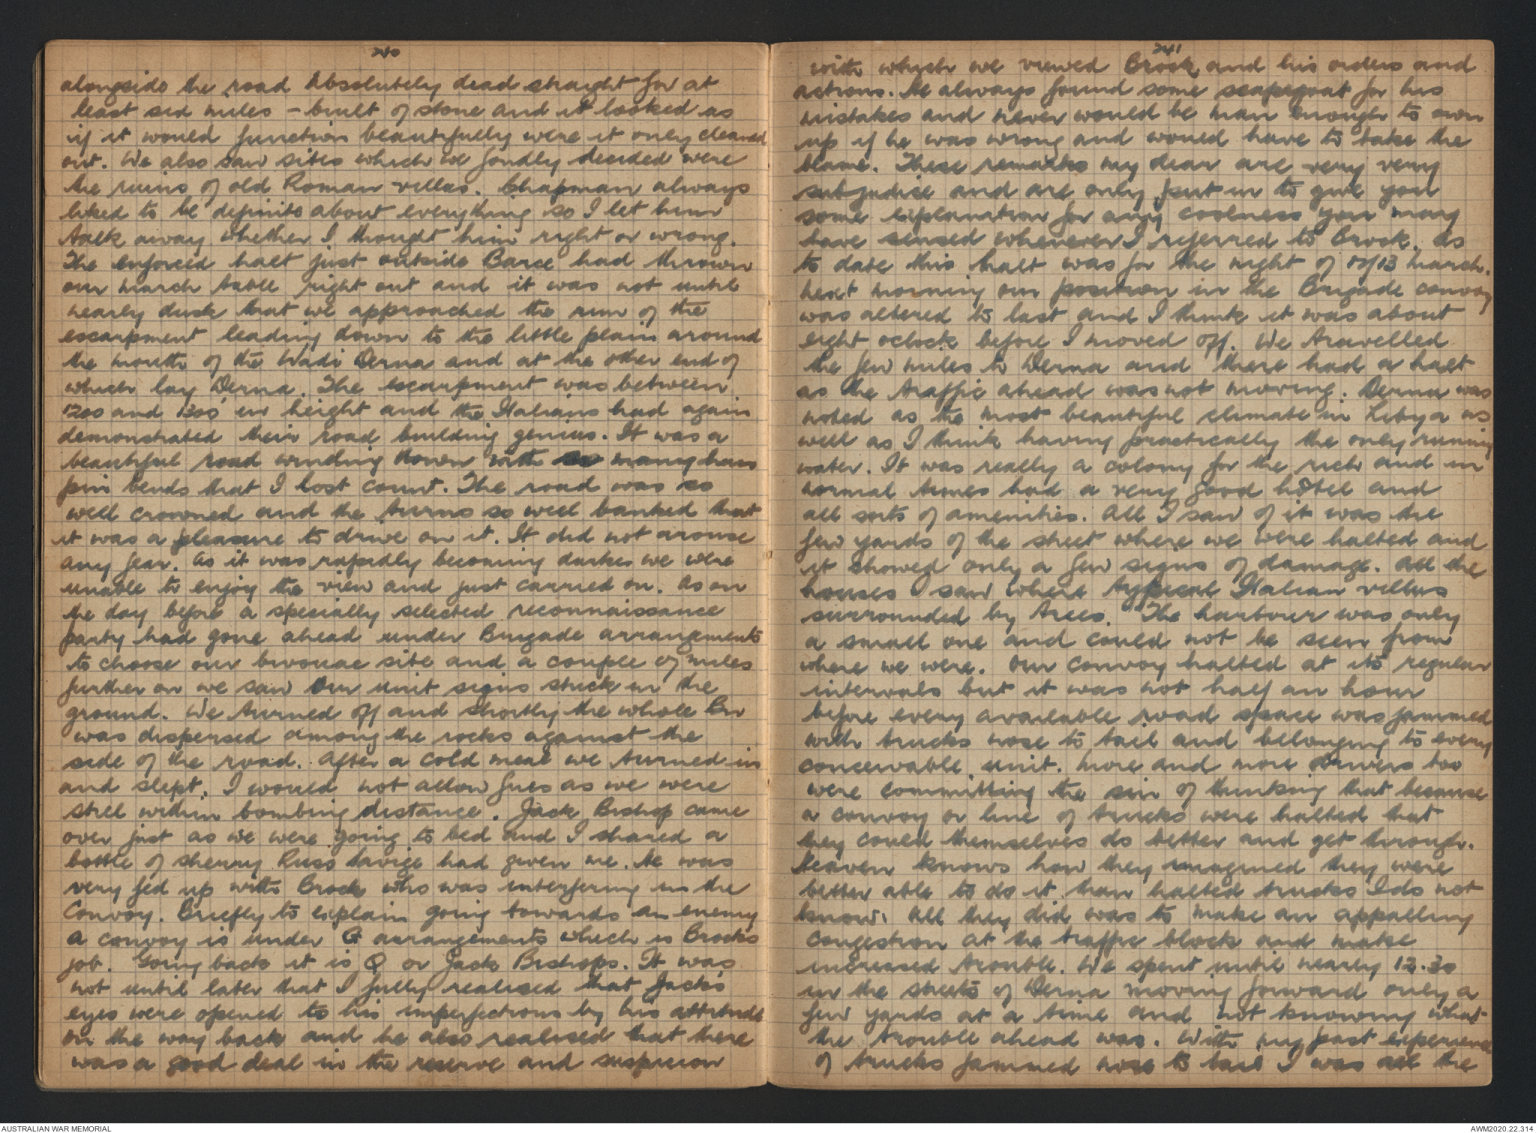 240
alongside the road Absolutely dead straight for at
least six miles - built of stone and it looked as
if it would function beautifully were it only cleaned
out. We also saw sites which we fondly decided were
the ruins of old Roman villas. Chapman always
liked to be definite about everything so I let him
talk away whether I thought him right or wrong.
The enforced halt just outside Barce had thrown
our march table right out and it was not until
nearly dusk that we approached the rim of the
escarpment leading down to the little plain around
the mouth of the Wadi Derna and at the other end of
which lay Derna. The escarpment was between
1200 and 1300' in height and the Italians had again
demonstrated their road building genius. It was a
beautiful road winding down with so many hair
pin bends that I lost count. The road was so
well crowned and the turns so well banked that
it was a pleasure to drive on it. It did not arouse
any fear. As it was rapidly becoming darker we were
unable to enjoy the view and just carried on. As on
the day before a specially selected reconnaissance
party had gone ahead under Brigade arrangements
to choose our bivouac site and a couple of miles
further on we saw our unit signs stuck in the
ground. We turned off and shortly the whole Bn
was dispersed among the rocks against the
side of the road. After a cold meal we turned in
and slept. I would not allow fires as we were
still within bombing distance. Jack Bishop came
over just as we were going to bed and I shared a
bottle of sherry Russ Savige had given me. He was
very fed up with Brock who was interfering in the
Convoy. Briefly to explain going towards an enemy
a convoy is under G arrangements which is Brocks
job. Going back it is Q or Jack Bishops. It was
not until later that I fully realised that Jack's
eyes were opened to his imperfections by his attitude
on the way back and he also realised that there
was a good deal in the reserve and suspicion
241
with which we viewed Brock and his orders and
actions. He always found some scapegoat for his
mistakes and never would be man enough to own
up if he was wrong and would have to take the
blame. These remarks my dear are very very
subjudice and are only put in to give you
some explanation for any coolness you may
have sensed whenever I referred to Brock. As
to date this halt was for the night of 12/13 March.
Next morning our position in the Brigade convoy
was altered to last and I think it was about
eight oclock before I moved off. We travelled
the few miles to Derna and there had a halt
as the traffic ahead was not moving. Derna was
noted as the most beautiful climate in Libya as
well as I think having practically the only running
water. It was really a colony for the rich and in
normal times had a very good hotel and
all sorts of amenities. All I saw of it was the
few yards of the street where we were halted and
it showed only a few signs of damage. All the
houses I saw where typical Italian villas
surrounded by trees. The harbour was only
a small one and could not be seen from
where we were. Our convoy halted at its regular
intervals but it was not half an hour
before every available road space was jammed
with trucks nose to tail and belonging to every
conceivable unit. More and more drivers too
were committing the sin of thinking that because
a convoy or line of trucks were halted that
they could themselves do better and get through.
Heaven knows how they imagined they were
better able to do it than halted trucks I do not
know. All they did was to make an appalling
congestion at the traffic block and make
increased trouble. We spent until nearly 12.30
in the streets of Derna moving forward only a
few yards at a time and not knowing what
the trouble ahead was. With my past experience
of trucks jammed nose to tail I was all the
AUSTRALIAN WAR MEMORIAL
AWM2020.22.314